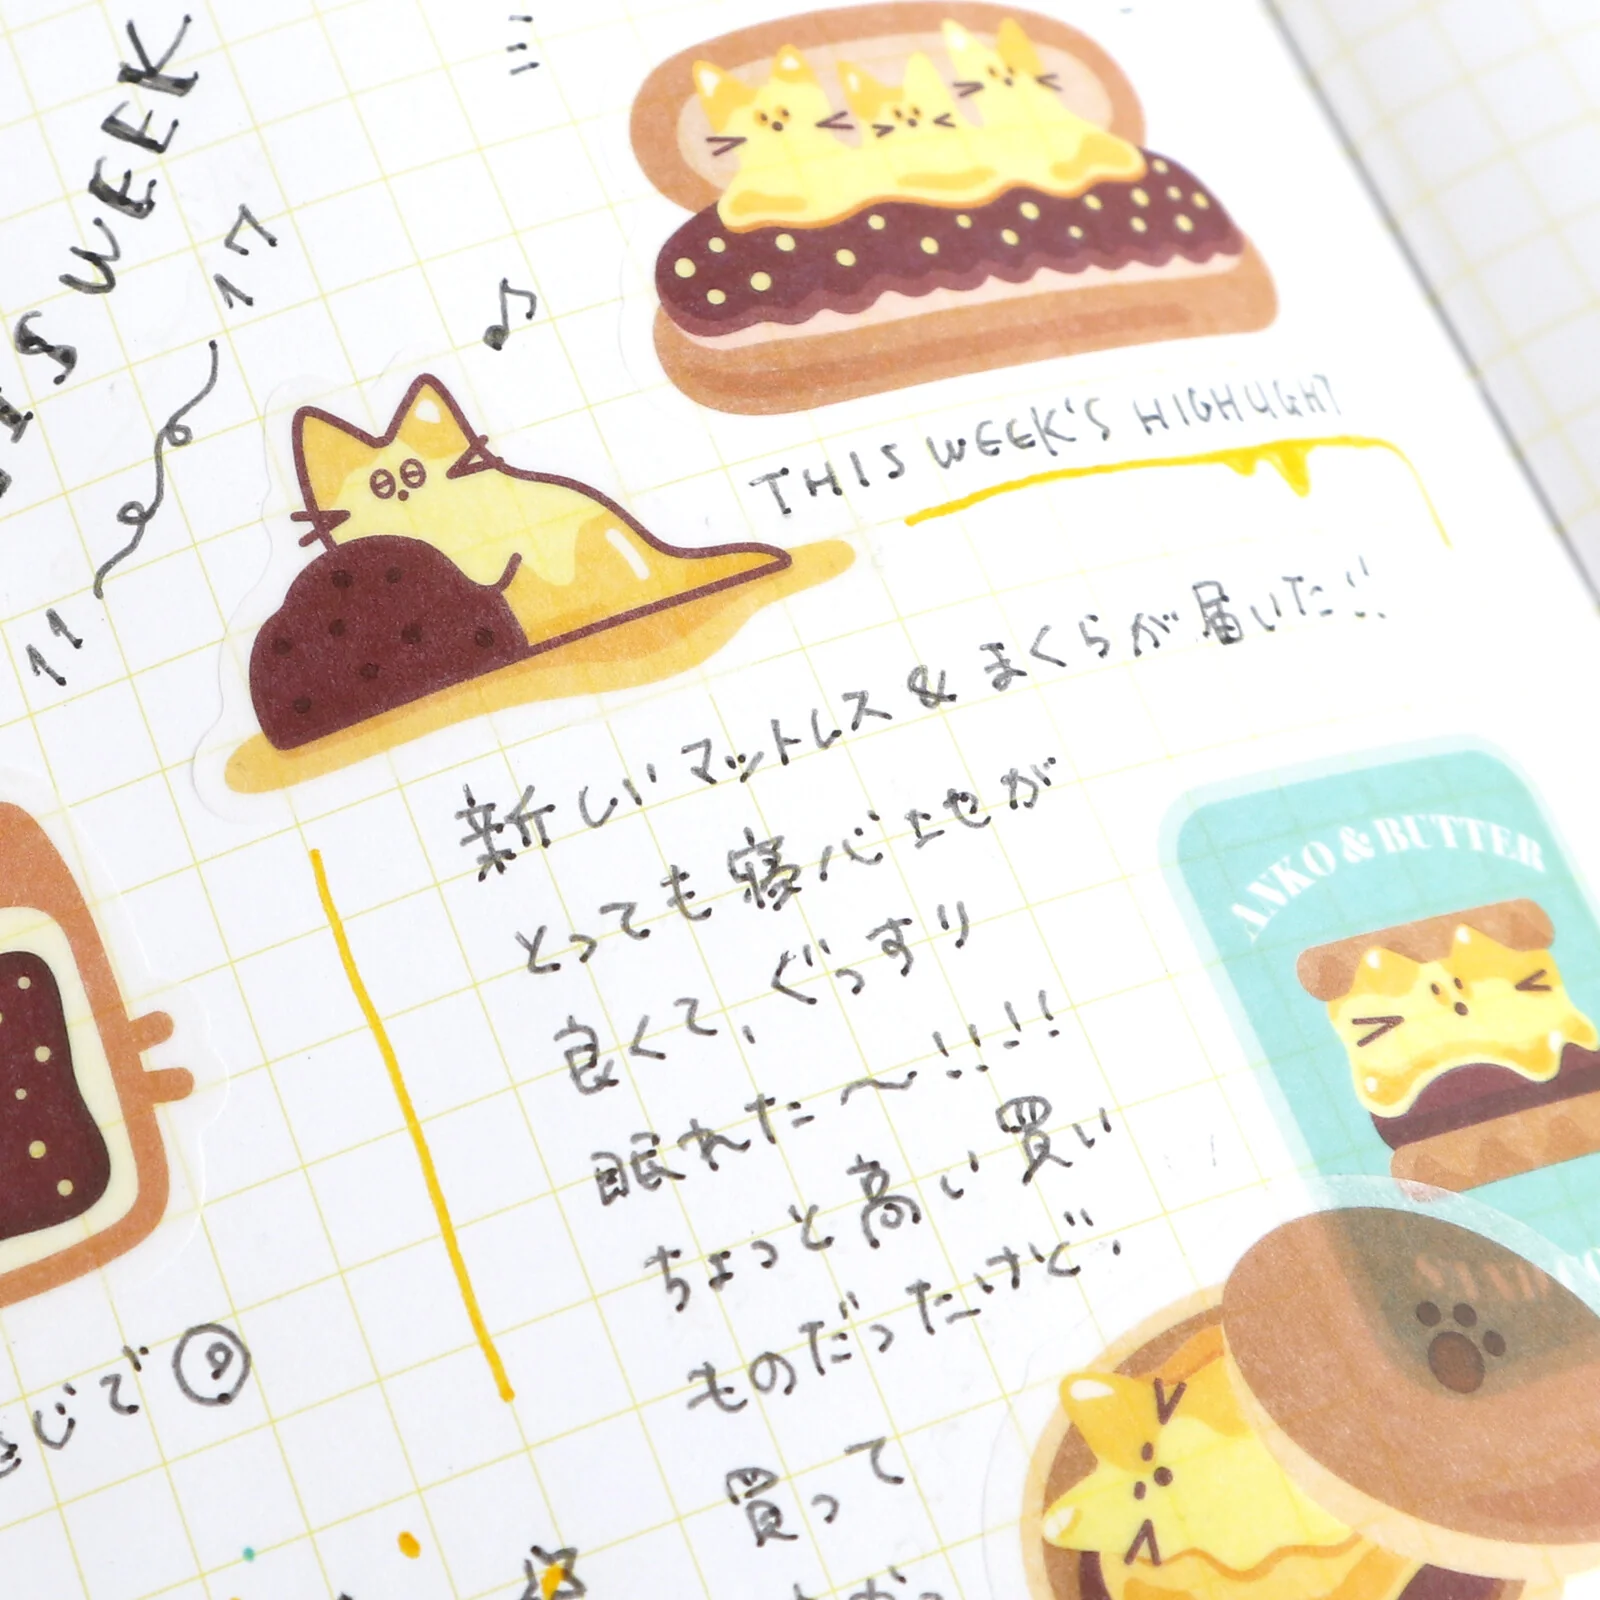 IS WEEK
17
11
THIS WEEK'S HIGHLIGHT
新しいマットレス & まくらが届いた!!
とっても寝心地が
良くて、ぐっすり
眠れた〜!!!!
ちょっと高い買い
ものだったけど
買って
ANKO & BUTTER
じで